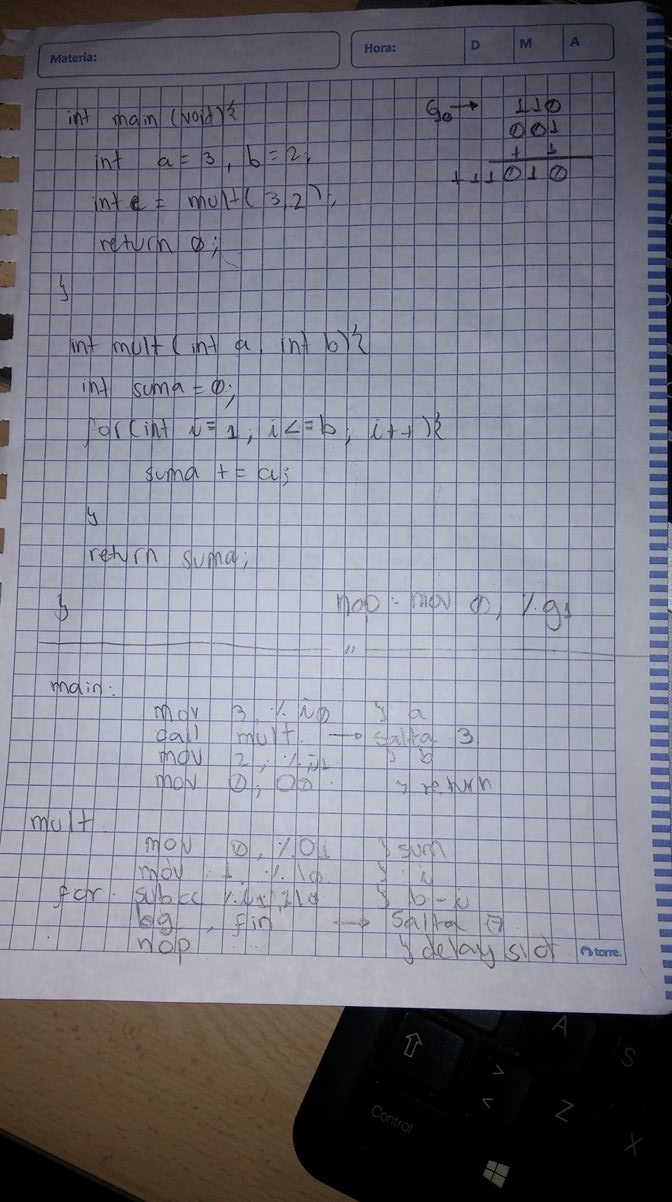 Materia:
Hora: D M A
int main (void){
int a = 3, b = 2;
int c = mult( 3,2 );
return 0;
}
g0 → 110
001
+ 1
111010
int mult ( int a, int b){
int suma = 0;
for(int i = 1; i <= b; i++){
suma += a;
}
return suma;
}
nop: mov 0, %g1
main:
mov 3, %i0 } a
call mult → salta 3
mov 2, %i1 } b
mov 0, O0 } return
mult
mov 0, %O1 } sum
mov 1, %l0 } i
for: subcc %i1, %l0 } b-i
bg, fin → Salta 7
nop } delay slot
torre.
A
S
Z
X
Control
> <